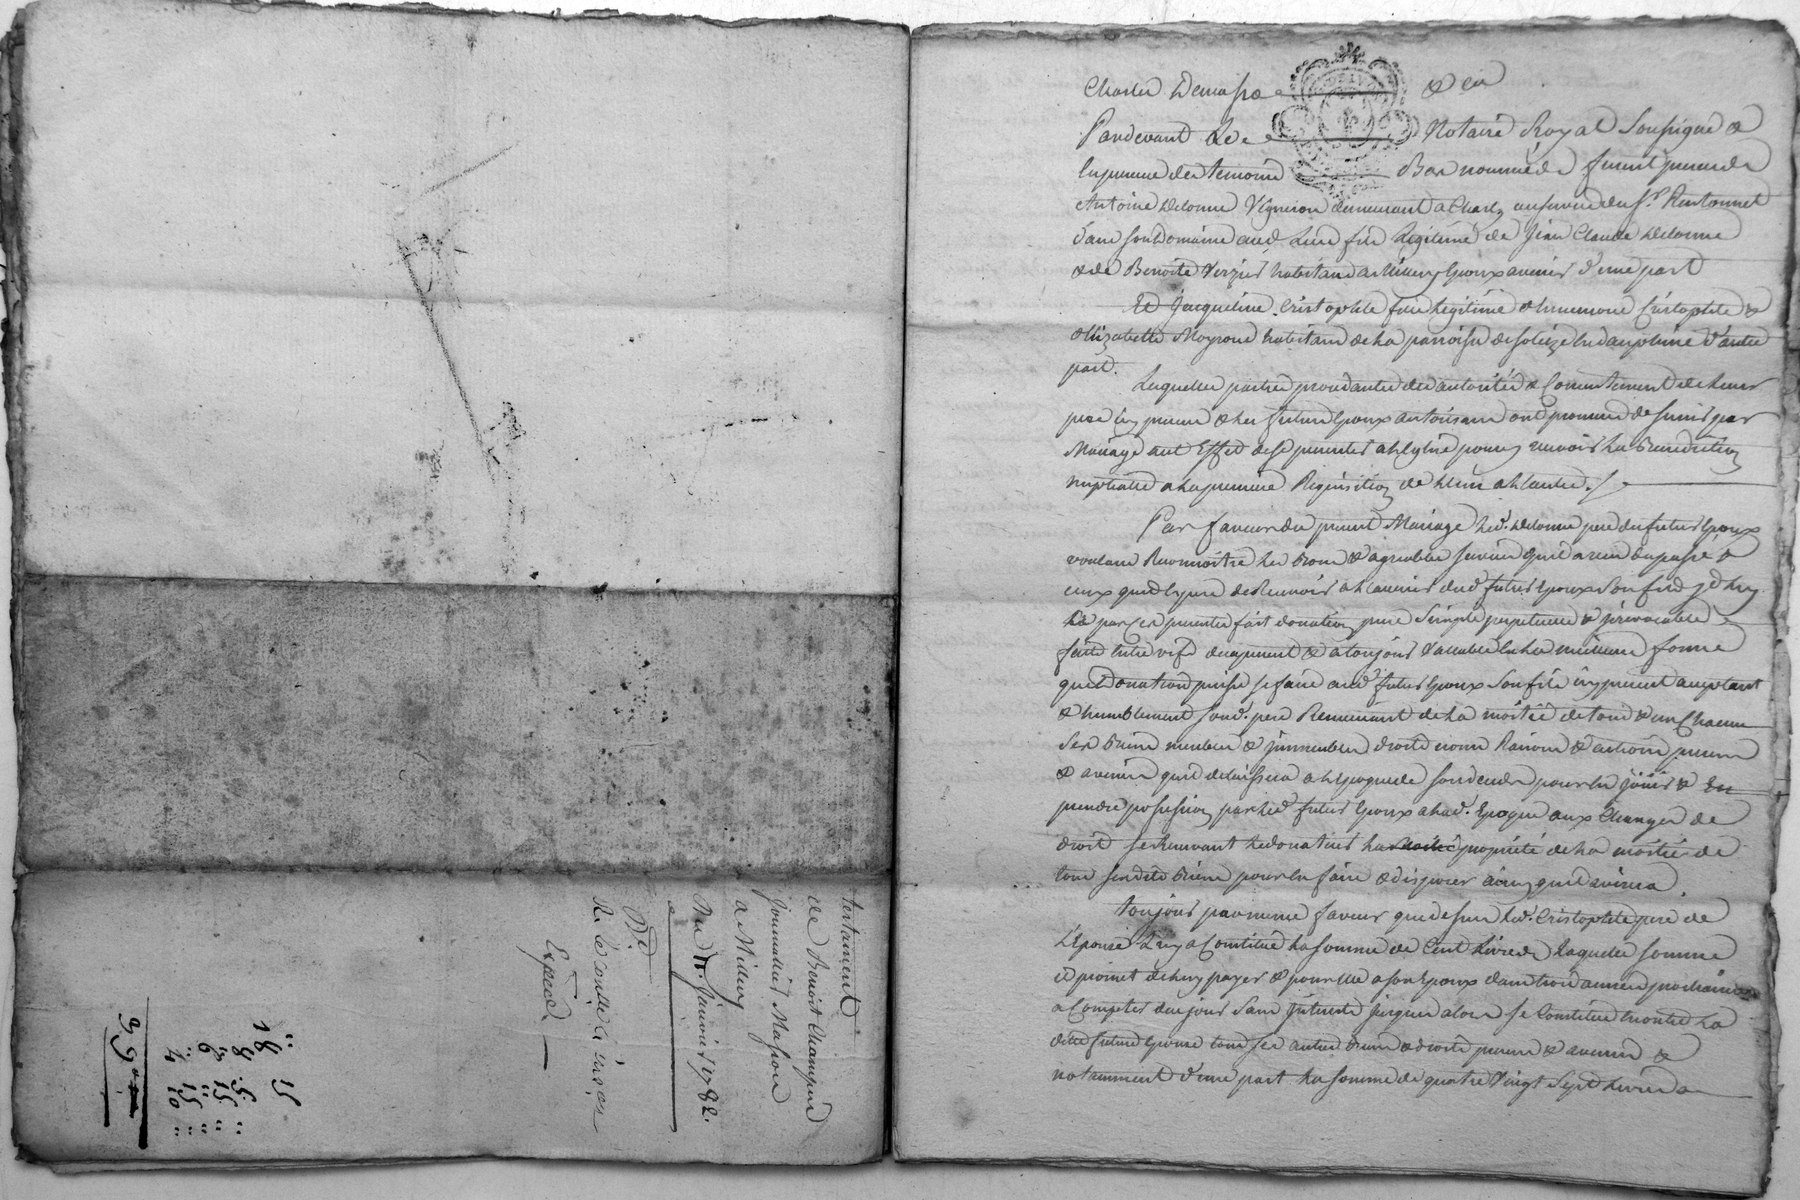 testament
de Benoit Champin
journallier Masson
a Millery
Du 11. Janvier 1782.
Expéd.
Pardevant Le Notaire Royal Soussigné &
en presence des temoins Bas nommés furent presents
Antoine Delorme Vigneron demeurant a Charly au service du Sr.
dans son Domaine aud. Lieu fils Legitime de Jean Claude Delorme
& de Benoite Verzier habitans a Millery Epoux avenir d'une part
Et Jacqueline Cristophle fille Legitime Cristophle &
d'Elizabette habitans de La parroisse de en dauphine d'autre
part.
Lesquelles parties procedantes des autorités & Consentement de Leurs
pere cy present & les futurs Epoux ont promis de s'unir par
Mariage a cet Effet de se presenter a L'Eglise pour y recevoir La Benediction
nuptialle a La premiere Requisition de L'un a L'autre. /
Par faveur du present Mariage Led. Delorme pere du futur Epoux
voulant Reconnoitre Les Bons & agreables services qu'il a reçu du passé &
ceux qu'il Espere de Recevoir a L'avenir dud. futur Epoux Son fils
par Ces presentes fait donation pure Simple perpetuelle & irrevocable
faite entre vifs a present & a toujours Valable en La meilleure forme
que Donation puisse se faire aud. futur Epoux Son fils cy present acceptant
& humblement sond. pere Remerciant de La moitié de tous & un Chacun
Ses Biens meubles & immeubles droits noms Raisons & actions presens
& avenir qu'il delaissera a L'Epoque de son decés pour en jouir & En
prendre possession par Led. futur Epoux a Lad. Epoque aux Charges de
droit se Reservant Le donateur La propriété de La moitié de
tous sesdits Biens pour en faire & disposer ainsy qu'il avisera.
Toujours par meme faveur que dessus Led. Cristophle pere de
L'Epouse Luy a Constitué La somme de Cent Livres Laquelle somme
il promet de Luy payer & pour Elle a son Epoux dans trois années prochaines
a Compter du jour Sans Interets jusques alors se Constitue en outre La
ditte future Epouse tous ses autres Biens & droits presens & avenir &
notamment d'une part La somme de quatre Vingt Sept Livres